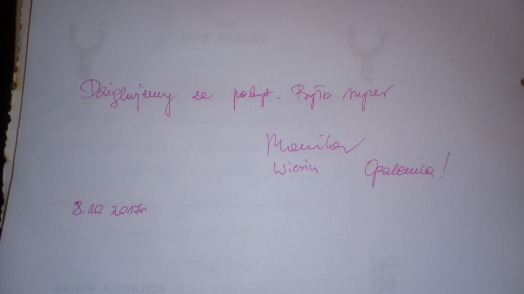 Dziękujemy za pobyt. Było super
Monika
Opalenica!
8.10 2017r